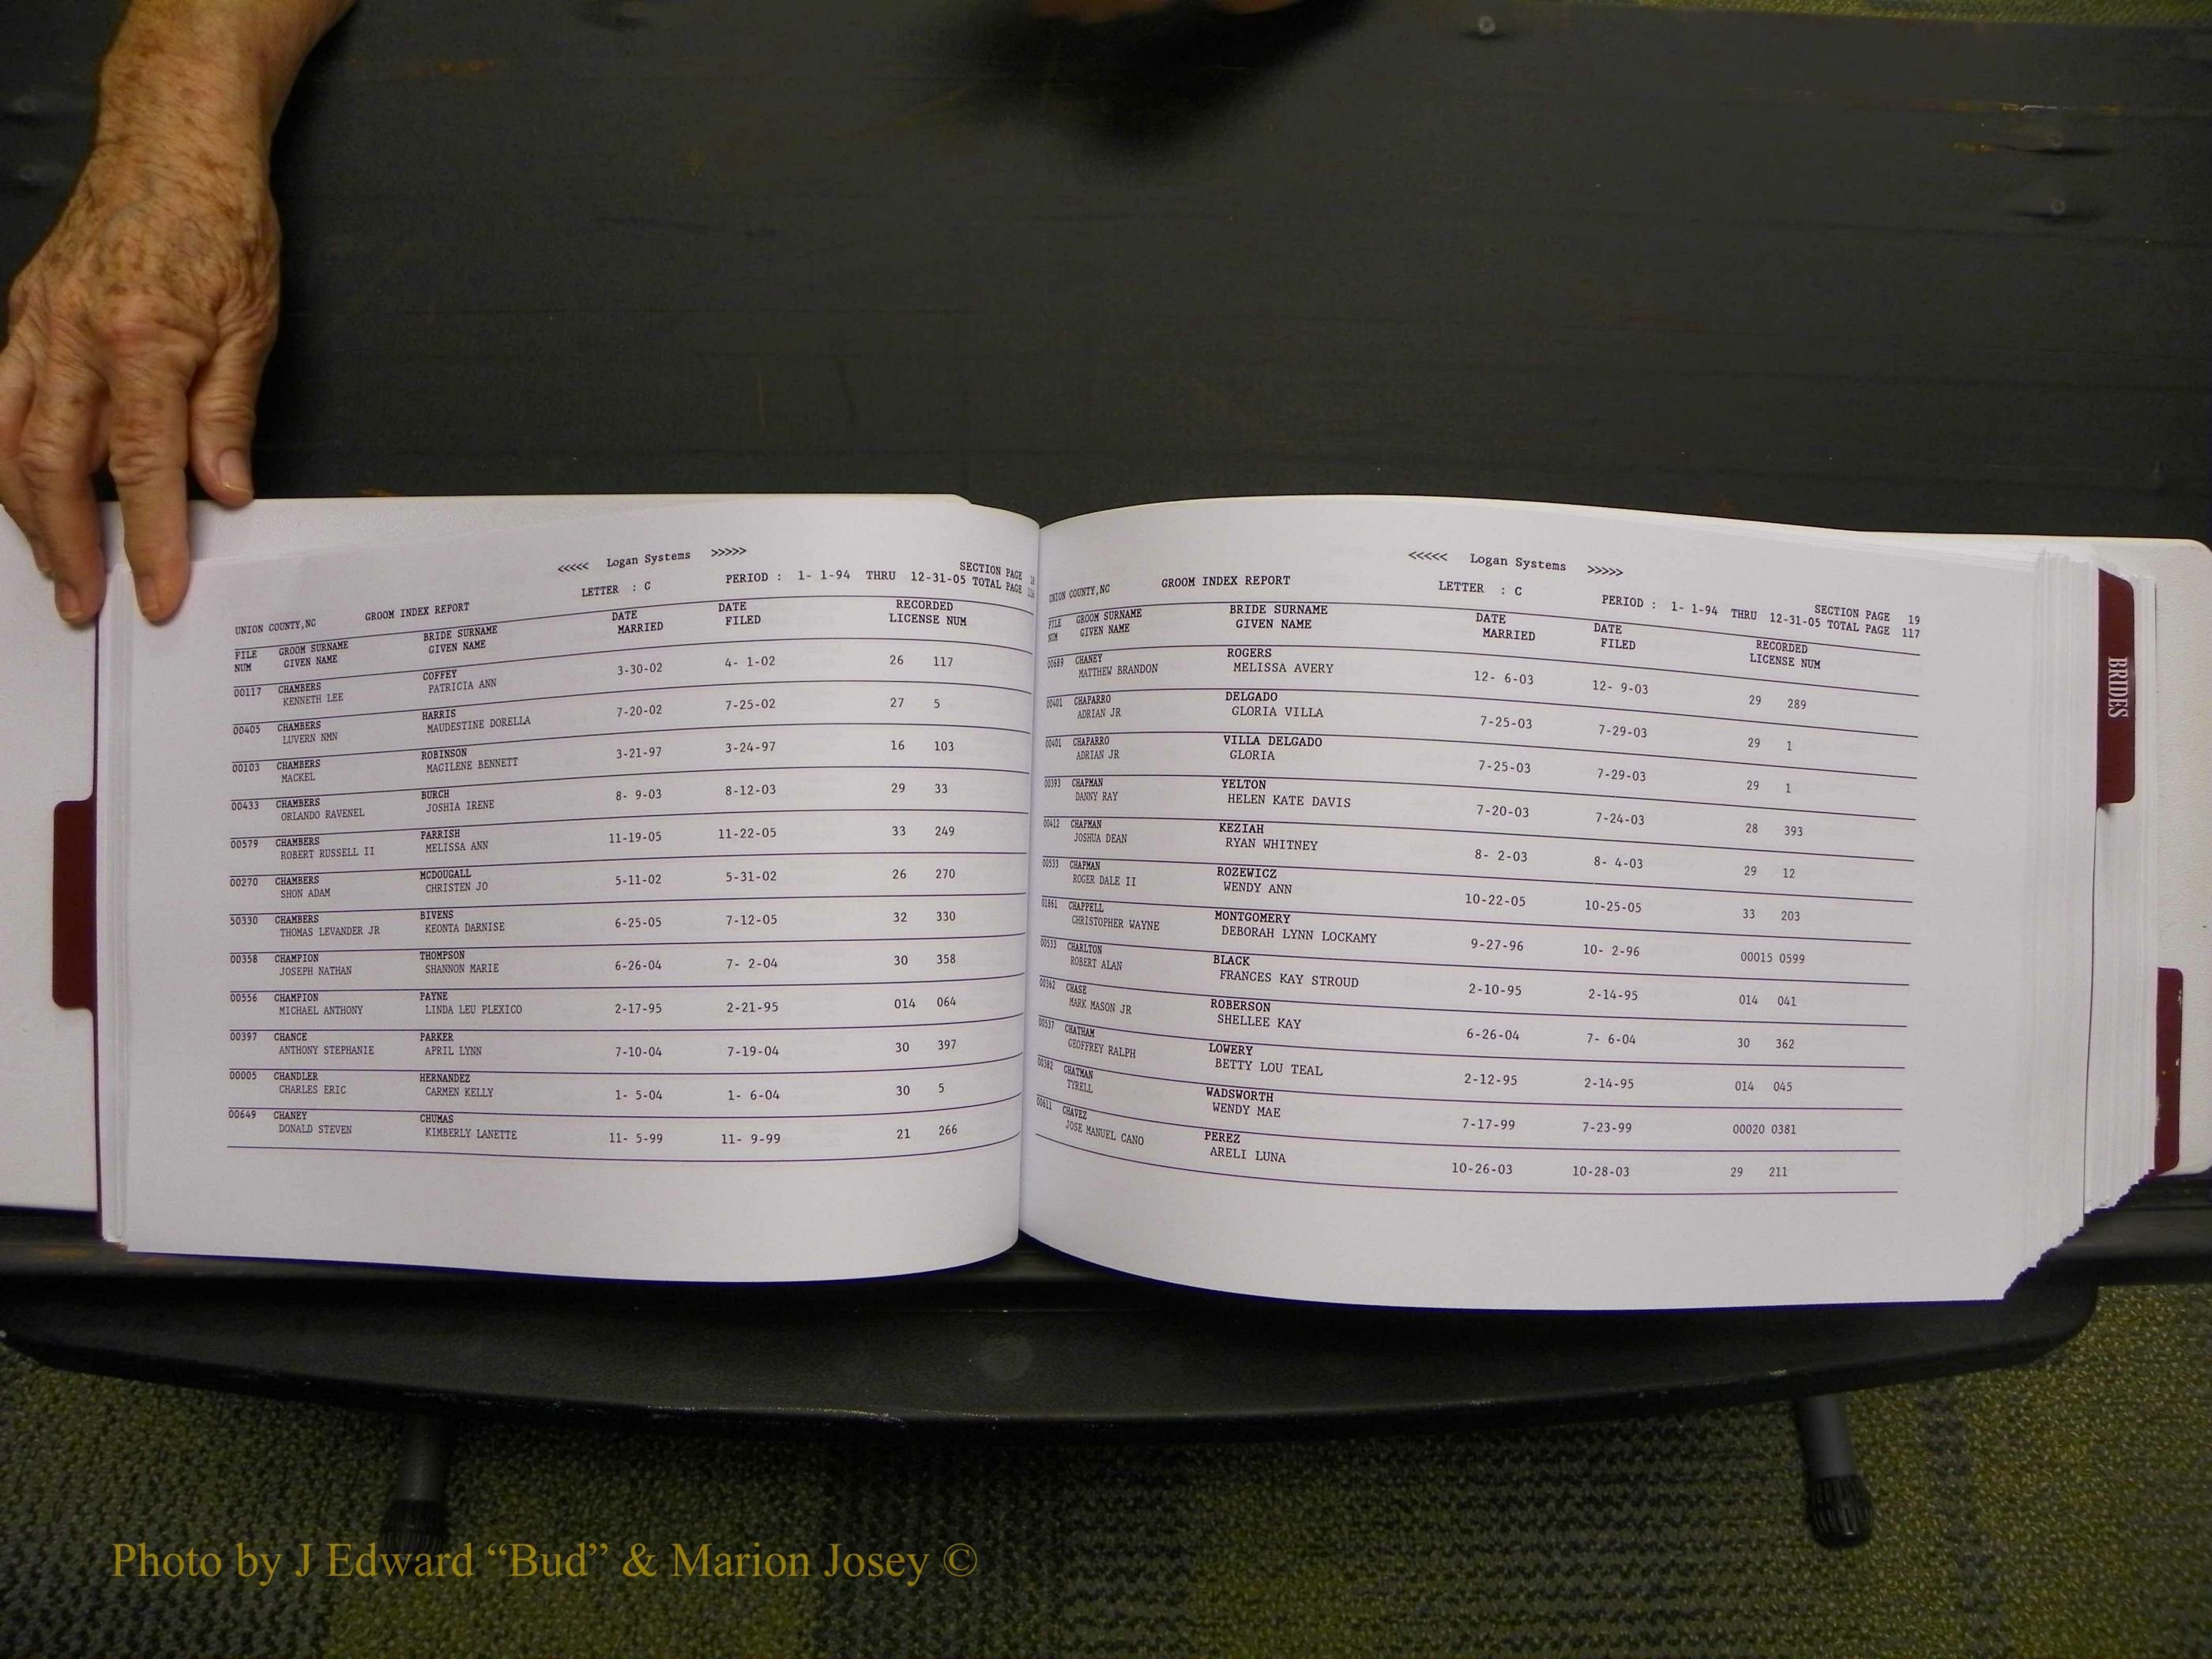 <<<<< Logan Systems >>>>>
UNION COUNTY,NC GROOM INDEX REPORT LETTER : C PERIOD : 1- 1-94 THRU 12-31-05 SECTION PAGE
TOTAL PAGE
FILE GROOM SURNAME BRIDE SURNAME DATE DATE RECORDED
NUM GIVEN NAME GIVEN NAME MARRIED FILED LICENSE NUM
00117 CHAMBERS COFFEY
KENNETH LEE PATRICIA ANN 3-30-02 4- 1-02 26 117
00405 CHAMBERS HARRIS
LUVERN NMN MAUDESTINE DORELLA 7-20-02 7-25-02 27 5
00103 CHAMBERS ROBINSON
MACKEL MAGILENE BENNETT 3-21-97 3-24-97 16 103
00433 CHAMBERS BURCH
ORLANDO RAVENEL JOSHIA IRENE 8- 9-03 8-12-03 29 33
00579 CHAMBERS PARRISH
ROBERT RUSSELL II MELISSA ANN 11-19-05 11-22-05 33 249
00270 CHAMBERS MCDOUGALL
SHON ADAM CHRISTEN JO 5-11-02 5-31-02 26 270
50330 CHAMBERS BIVENS
THOMAS LEVANDER JR KEONTA DARNISE 6-25-05 7-12-05 32 330
00358 CHAMPION THOMPSON
JOSEPH NATHAN SHANNON MARIE 6-26-04 7- 2-04 30 358
00556 CHAMPION PAYNE
MICHAEL ANTHONY LINDA LEU PLEXICO 2-17-95 2-21-95 014 064
00397 CHANCE PARKER
ANTHONY STEPHANIE APRIL LYNN 7-10-04 7-19-04 30 397
00005 CHANDLER HERNANDEZ
CHARLES ERIC CARMEN KELLY 1- 5-04 1- 6-04 30 5
00649 CHANEY CHUMAS
DONALD STEVEN KIMBERLY LANETTE 11- 5-99 11- 9-99 21 266
<<<<< Logan Systems >>>>>
UNION COUNTY,NC GROOM INDEX REPORT LETTER : C PERIOD : 1- 1-94 THRU 12-31-05 SECTION PAGE 19
TOTAL PAGE 117
FILE GROOM SURNAME BRIDE SURNAME DATE DATE RECORDED
NUM GIVEN NAME GIVEN NAME MARRIED FILED LICENSE NUM
00689 CHANEY ROGERS
MATTHEW BRANDON MELISSA AVERY 12- 6-03 12- 9-03 29 289
00401 CHAPARRO DELGADO
ADRIAN JR GLORIA VILLA 7-25-03 7-29-03 29 1
00401 CHAPARRO VILLA DELGADO
ADRIAN JR GLORIA 7-25-03 7-29-03 29 1
00393 CHAPMAN YELTON
DANNY RAY HELEN KATE DAVIS 7-20-03 7-24-03 28 393
00412 CHAPMAN KEZIAH
JOSHUA DEAN RYAN WHITNEY 8- 2-03 8- 4-03 29 12
00533 CHAPMAN ROZEWICZ
ROGER DALE II WENDY ANN 10-22-05 10-25-05 33 203
01861 CHAPPELL MONTGOMERY
CHRISTOPHER WAYNE DEBORAH LYNN LOCKAMY 9-27-96 10- 2-96 00015 0599
00533 CHARLTON BLACK
ROBERT ALAN FRANCES KAY STROUD 2-10-95 2-14-95 014 041
00362 CHASE ROBERSON
MARK MASON JR SHELLEE KAY 6-26-04 7- 6-04 30 362
00537 CHATHAM LOWERY
GEOFFREY RALPH BETTY LOU TEAL 2-12-95 2-14-95 014 045
00382 CHATMAN WADSWORTH
TYRELL WENDY MAE 7-17-99 7-23-99 00020 0381
00611 CHAVEZ PEREZ
JOSE MANUEL CANO ARELI LUNA 10-26-03 10-28-03 29 211
BRIDES
Photo by J Edward “Bud” & Marion Josey ©